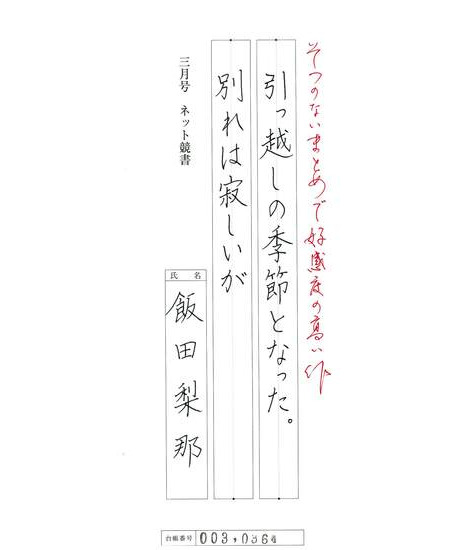 そつのないまとめで好感度の高い作
引っ越しの季節となった。
別れは寂しいが
三月号 ネット競書
氏名
飯田梨那
台帳番号 003,0364